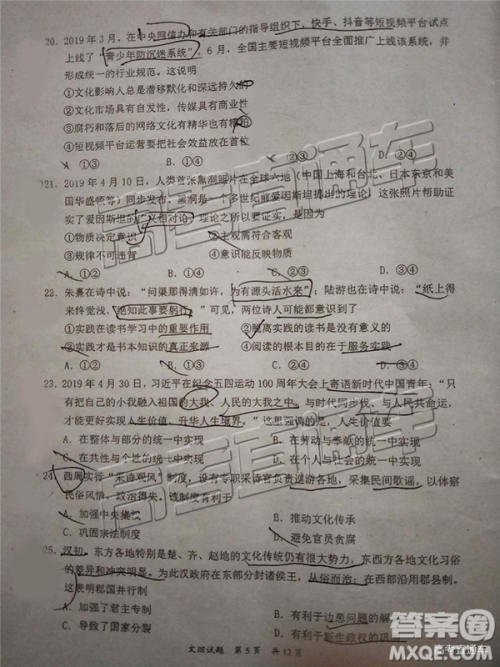 20. 2019 年 3 月，在中央网信办和有关部门的指导组织下，快手、抖音等短视频平台试点
上线了“青少年防沉迷系统”。6 月，全国主要短视频平台全面推广上线该系统，并
形成统一的行业规范。这说明
①文化影响人总是潜移默化和深远持久的
②文化市场具有自发性，传媒具有商业性
③腐朽和落后的网络文化有精华也有糟粕
④短视频平台运营要把社会效益放在首位
A. ①③ B. ①④ C. ②③ D. ②④
21. 2019 年 4 月 10 日，人类首张黑洞照片在全球六地（中国上海和台北、日本东京和美
国华盛顿等）同步发布。黑洞是一个多世纪前爱因斯坦提出的理论，这张照片帮助证
实了爱因斯坦的“广义相对论”理论之所以要证实，是因为
①物质决定意识 ②主观需符合客观
③规律不可违背 ④意识能反映物质
A. ①② B. ①④ C. ②③ D. ③④
22. 朱熹在诗中说：“问渠那得清如许，为有源头活水来”；陆游也在诗中说：“纸上得
来终觉浅，绝知此事要躬行”可见，两位诗人可能都意识到了
①实践在读书学习中的重要作用 ②脱离实践的读书是没有意义的
③实践是书本知识的真正来源 ④阅读的根本目的在于服务实践
A. ①③ B. ①④ C. ②③ D. ②④
23. 2019 年 4 月 30 日，习近平在纪念五四运动 100 周年大会上寄语新时代中国青年：“只
有把自己的小我融入祖国的大我、人民的大我之中，与时代同步伐、与人民共命运，
才能更好实现人生价值、升华人生境界。”这里强调的是，人生价值要
A. 在整体与部分的统一中实现 B. 在劳动与奉献的统一中实现
C. 在共性与个性的统一中实现 D. 在个人与社会的统一中实现
24. 西周实行“采诗观风”制度，设有专职采诗官员负责巡游各地，采集民间歌谣，以体察
民俗风情、政治得失。该制度有利于
A. 加强中央集权 B. 推动文化传承
C. 巩固宗法制度 D. 避免官员贪腐
25. 汉初，东方各地特别是楚、齐、赵地的文化传统仍有很大势力，东西方各地文化习俗
的差异和冲突明显。为此汉政府在东部分封诸侯王，从俗而治；在西部沿用郡县制。
这表明郡国并行制
A. 加强了君主专制 B. 有利于边患问题的解
D. 有利于新生政权的巩
文综试题 第 5 页 共 12 页
高考直通车
答案圈